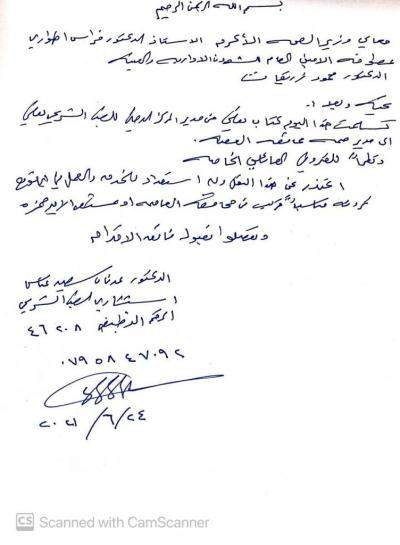 بسم الله الرحمن الرحيم
معالي وزير الصحة الأكرم الاستاذ الدكتور فراس الهواري
عطوفة الامين العام للشؤون الادارية والفنية
الدكتور
تحية وبعد ،
تسلمت هذا اليوم كتاب نقلي من مدير المركز الوطني للطب الشرعي نقلي
الى مدير صحة العقبة
ونظراً للظروف الخاصة
اعتذر عن هذا النقل ولدي استعداد للخدمة والعمل في اي موقع
ترونه مناسباً في محافظة العاصمة او مستشفى الامير حمزه
وتفضلوا بقبول فائق الاحترام
الدكتور عدنان سعيد عباس
استشاري الطب الشرعي
الرقم الوظيفي ٤٦٢٠٨
٠٧٩٥٨٤٧٠٩٢
٢٠٢١/٦/٢٤
CS Scanned with CamScanner